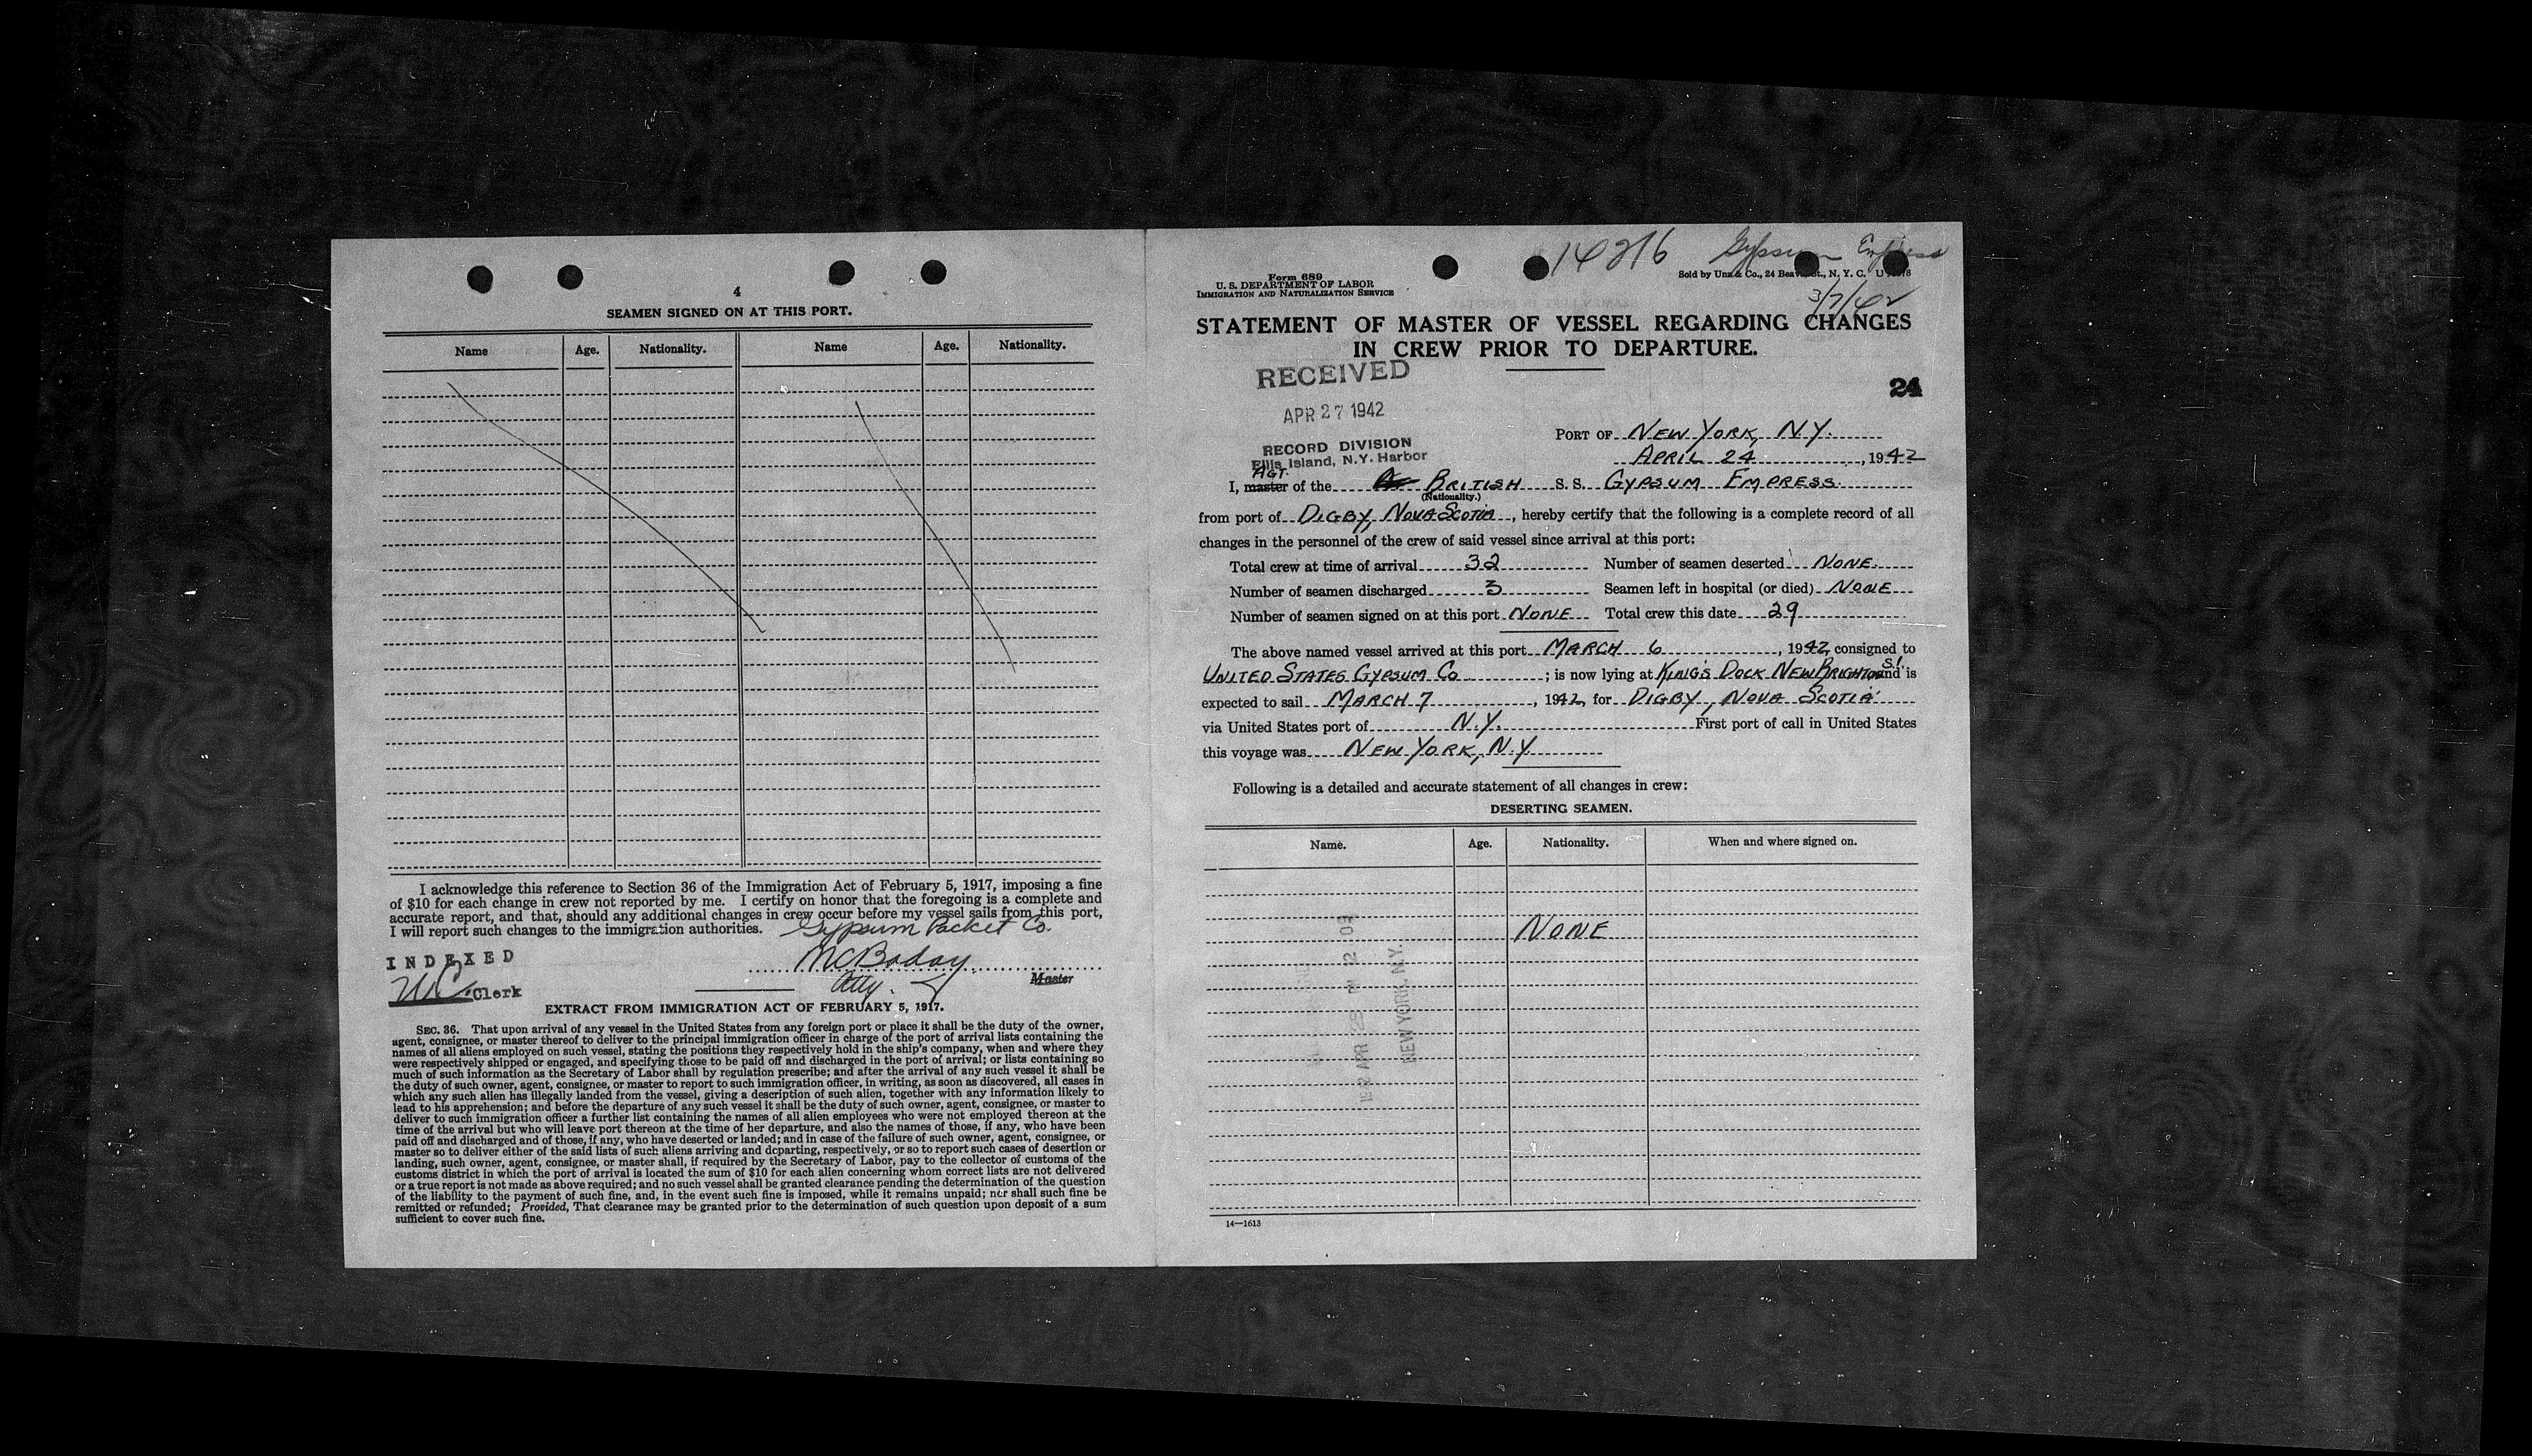 4
SEAMEN SIGNED ON AT THIS PORT.
Name Age. Nationality. Name Age. Nationality.
I acknowledge this reference to Section 36 of the Immigration Act of February 5, 1917, imposing a fine
of $10 for each change in crew not reported by me. I certify on honor that the foregoing is a complete and
accurate report, and that, should any additional changes in crew occur before my vessel sails from this port,
I will report such changes to the immigration authorities. Gypsum Packet Co.
INDEXED
Clerk
Atty.
Master
EXTRACT FROM IMMIGRATION ACT OF FEBRUARY 5, 1917.
SEC. 36. That upon arrival of any vessel in the United States from any foreign port or place it shall be the duty of the owner,
agent, consignee, or master thereof to deliver to the principal immigration officer in charge of the port of arrival lists containing the
names of all aliens employed on such vessel, stating the positions they respectively hold in the ship's company, when and where they
were respectively shipped or engaged, and specifying those to be paid off and discharged in the port of arrival; or lists containing so
much of such information as the Secretary of Labor shall by regulation prescribe; and after the arrival of any such vessel it shall be
the duty of such owner, agent, consignee, or master to report to such immigration officer, in writing, as soon as discovered, all cases in
which any such alien has illegally landed from the vessel, giving a description of such alien, together with any information likely to
lead to his apprehension; and before the departure of any such vessel it shall be the duty of such owner, agent, consignee, or master to
deliver to such immigration officer a further list containing the names of all alien employees who were not employed thereon at the
time of the arrival but who will leave port thereon at the time of her departure, and also the names of those, if any, who have been
paid off and discharged and of those, if any, who have deserted or landed; and in case of the failure of such owner, agent, consignee, or
master so to deliver either of the said lists of such aliens arriving and departing, respectively, or so to report such cases of desertion or
landing, such owner, agent, consignee, or master shall, if required by the Secretary of Labor, pay to the collector of customs of the
customs district in which the port of arrival is located the sum of $10 for each alien concerning whom correct lists are not delivered
or a true report is not made as above required; and no such vessel shall be granted clearance pending the determination of the question
of the liability to the payment of such fine, and, in the event such fine is imposed, while it remains unpaid; nor shall such fine be
remitted or refunded; Provided, That clearance may be granted prior to the determination of such question upon deposit of a sum
sufficient to cover such fine.
14216 Gypsum Empress
Form 689
U. S. DEPARTMENT OF LABOR
IMMIGRATION AND NATURALIZATION SERVICE
Sold by Unz & Co., 24 Beaver St., N. Y. C.
3/7/42
STATEMENT OF MASTER OF VESSEL REGARDING CHANGES
IN CREW PRIOR TO DEPARTURE.
RECEIVED
24
APR 27 1942
PORT OF NEW YORK, N.Y.
RECORD DIVISION
Ellis Island, N.Y. Harbor
APRIL 24, 1942
AGT.
I, master of the BRITISH S. S. GYPSUM EMPRESS
(Nationality.)
from port of DIGBY, NOVA SCOTIA, hereby certify that the following is a complete record of all
changes in the personnel of the crew of said vessel since arrival at this port:
Total crew at time of arrival 32 Number of seamen deserted NONE.
Number of seamen discharged 3 Seamen left in hospital (or died) NONE
Number of seamen signed on at this port NONE Total crew this date 29
The above named vessel arrived at this port MARCH 6, 1942, consigned to
UNITED STATES GYPSUM CO; is now lying at KING'S DOCK NEW BRIGHTON S.I. and is
expected to sail MARCH 7, 1942, for DIGBY, NOVA SCOTIA
via United States port of N.Y. First port of call in United States
this voyage was NEW YORK, N.Y.
Following is a detailed and accurate statement of all changes in crew:
DESERTING SEAMEN.
Name. Age. Nationality. When and where signed on.
NONE
NEW YORK, N.Y.
14—1613